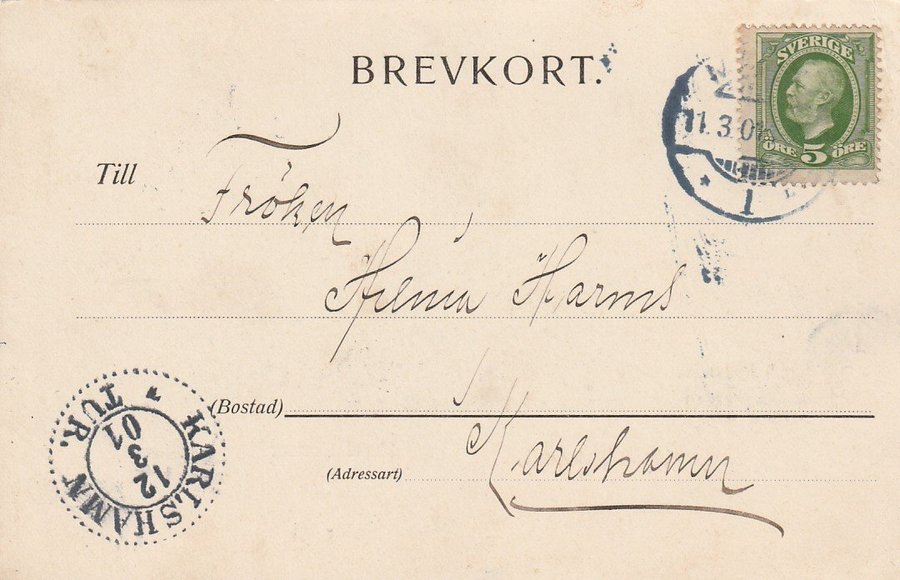 BREVKORT.
SVERIGE
ÖRE 5 ÖRE
11.3.01
1
Till
Fröken
Harms
(Bostad)
Karlshamn
(Adressart)
KARLSHAMN
TUR.
12
3
01